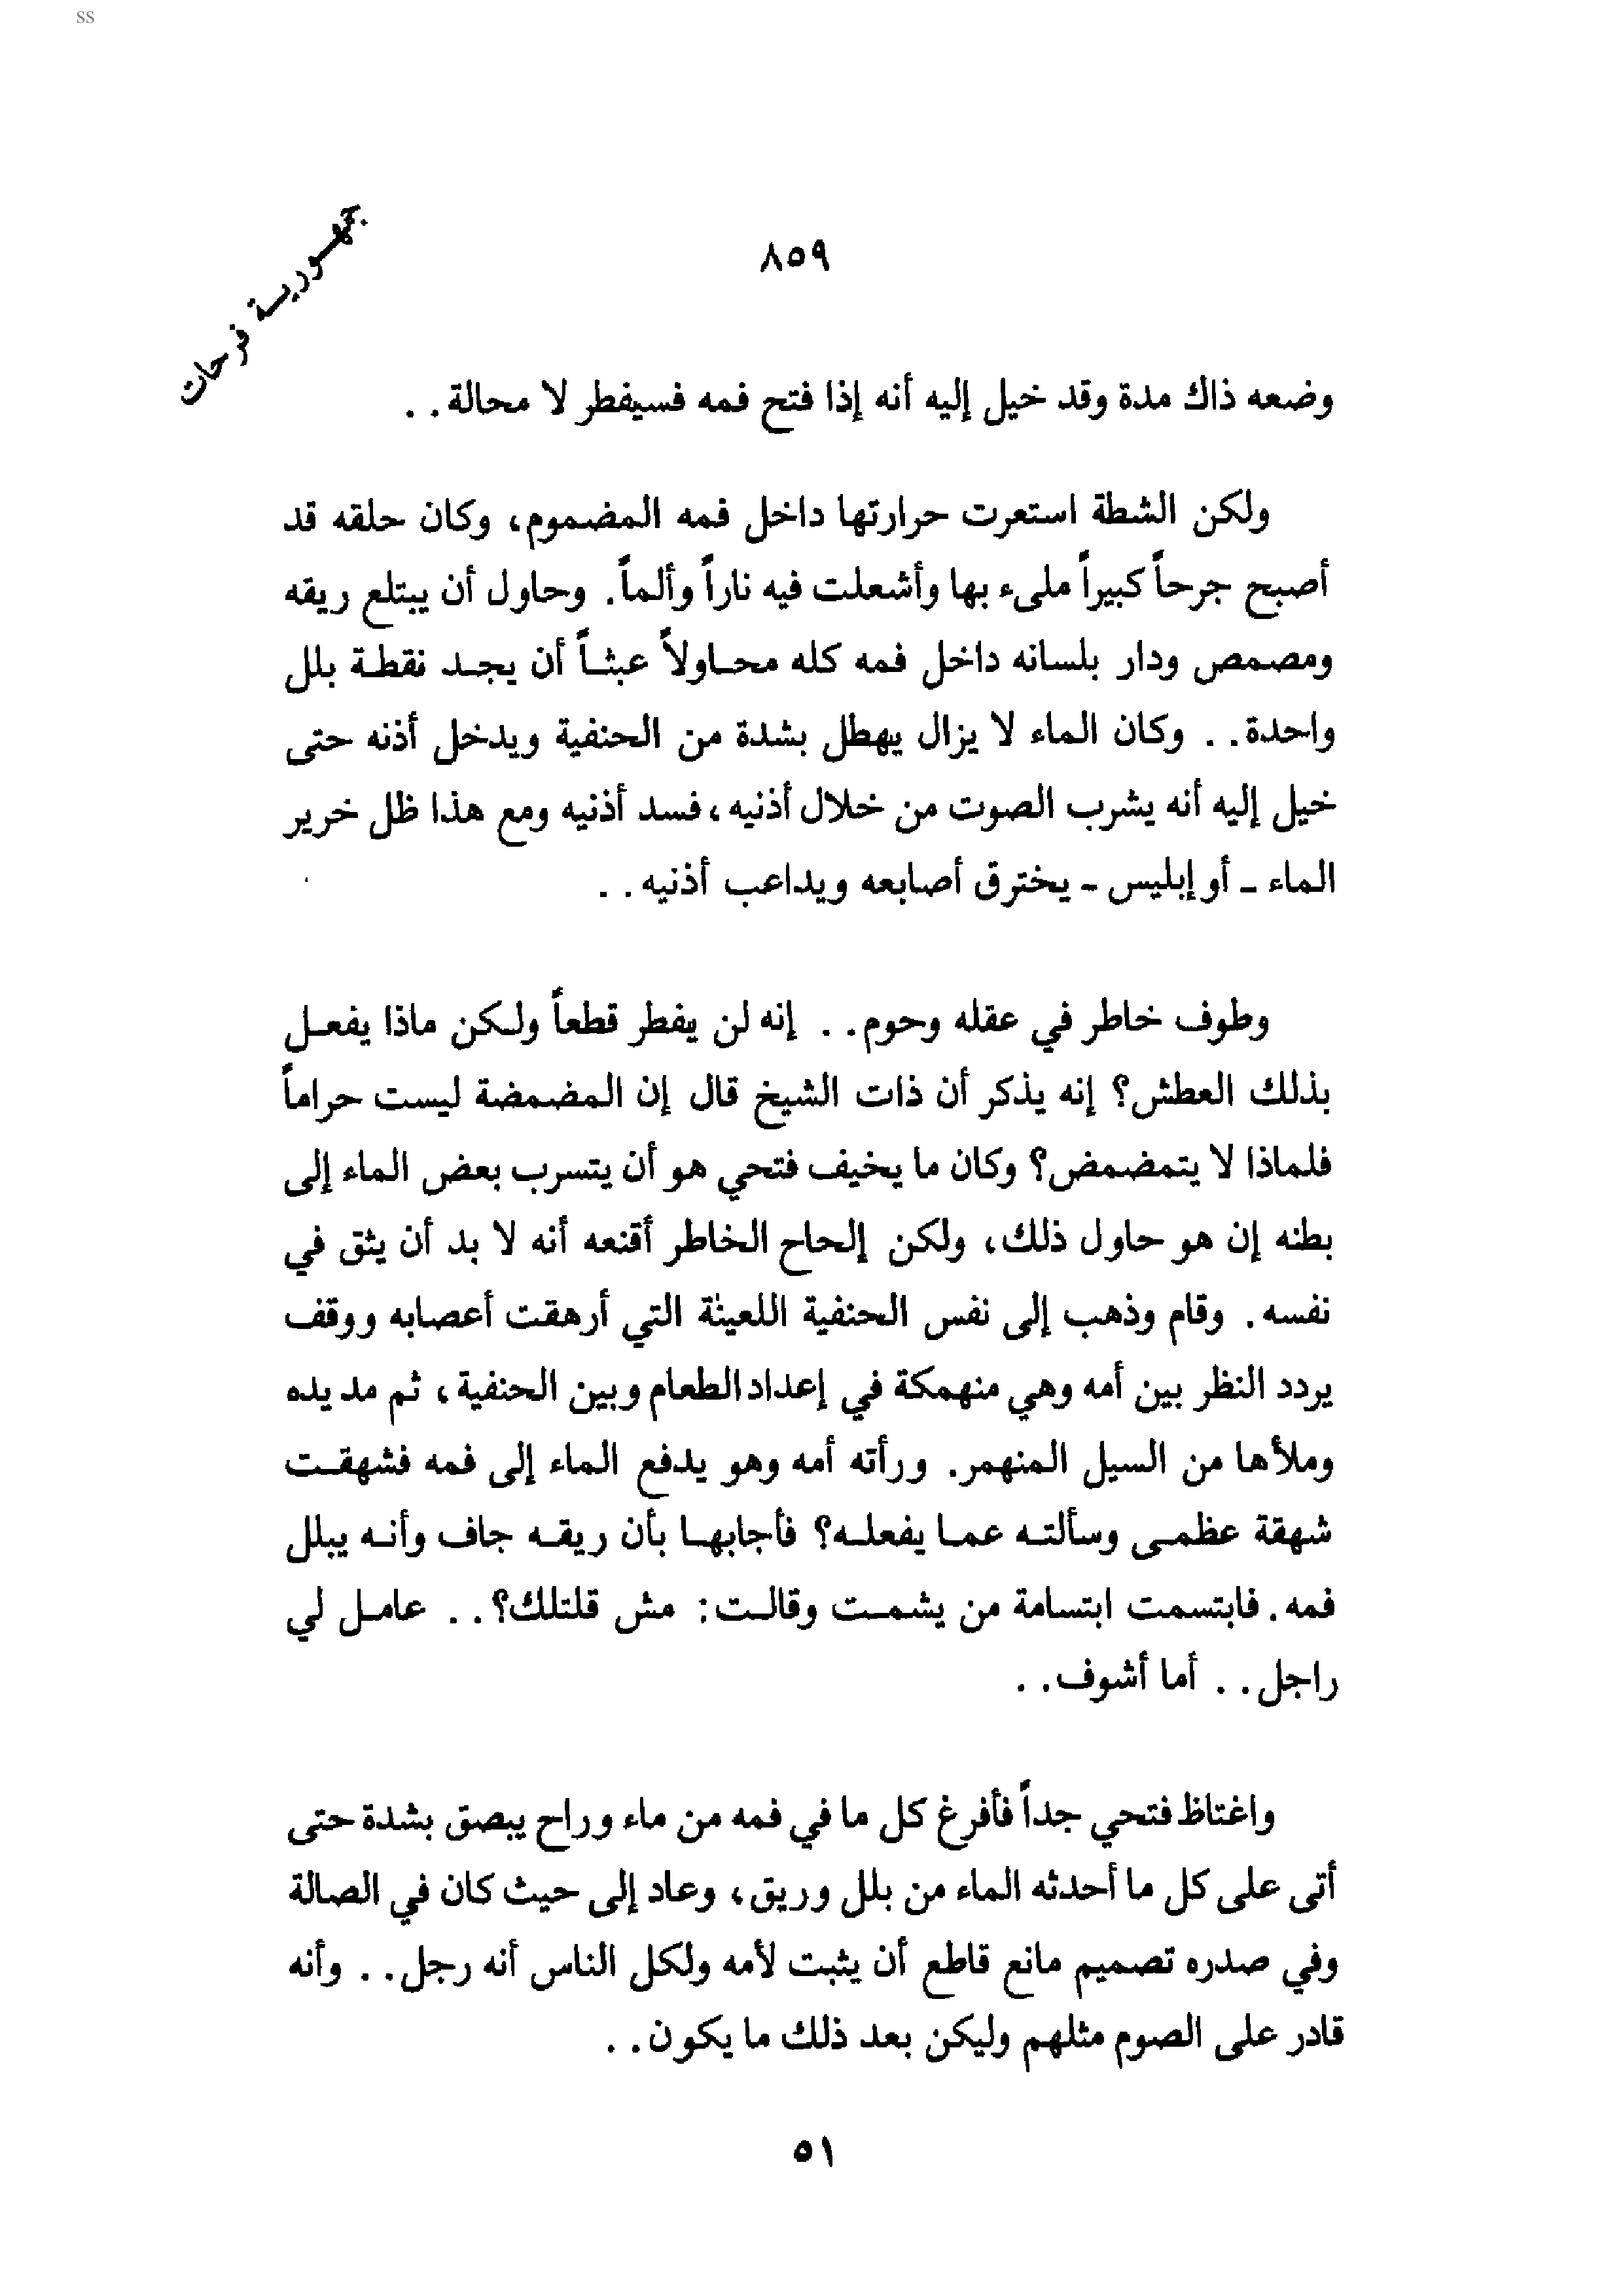 ss
جمهورية فرحات
٨٥٩
وضعه ذاك مدة وقد خيل إليه أنه إذا فتح فمه فسيفطر لا محالة. .
ولكن الشطة استعرت حرارتها داخل فمه المضموم، وكان حلقه قد
أصبح جرحاً كبيراً ملىء بها وأشعلت فيه ناراً وألماً. وحاول أن يبتلع ريقه
ومصمص ودار بلسانه داخل فمه كله محاولاً عبثاً أن يجد نقطة بلل
واحدة. . وكان الماء لا يزال يهطل بشدة من الحنفية ويدخل أذنه حتى
خيل إليه أنه يشرب الصوت من خلال أذنيه، فسد أذنيه ومع هذا ظل خرير
الماء - أو إبليس - يخترق أصابعه ويداعب أذنيه. .
وطوف خاطر في عقله وحوم. . إنه لن يفطر قطعاً ولكن ماذا يفعل
بذلك العطش؟ إنه يذكر أن ذات الشيخ قال إن المضمضة ليست حراماً
فلماذا لا يتمضمض؟ وكان ما يخيف فتحي هو أن يتسرب بعض الماء إلى
بطنه إن هو حاول ذلك، ولكن إلحاح الخاطر أقنعه أنه لا بد أن يثق في
نفسه. وقام وذهب إلى نفس الحنفية اللعينة التي أرهقت أعصابه ووقف
يردد النظر بين أمه وهي منهمكة في إعداد الطعام وبين الحنفية، ثم مد يده
وملأها من السيل المنهمر. ورأته أمه وهو يدفع الماء إلى فمه فشهقت
شهقة عظمى وسألته عما يفعله؟ فأجابها بأن ريقه جاف وأنه يبلل
فمه. فابتسمت ابتسامة من يشمت وقالت: مش قلتلك؟. . عامل لي
راجل. . أما أشوف. .
واغتاظ فتحي جداً فأفرغ كل ما في فمه من ماء وراح يبصق بشدة حتى
أتى على كل ما أحدثه الماء من بلل وريق، وعاد إلى حيث كان في الصالة
وفي صدره تصميم مانع قاطع أن يثبت لأمه ولكل الناس أنه رجل. . وأنه
قادر على الصوم مثلهم وليكن بعد ذلك ما يكون. .
٥١